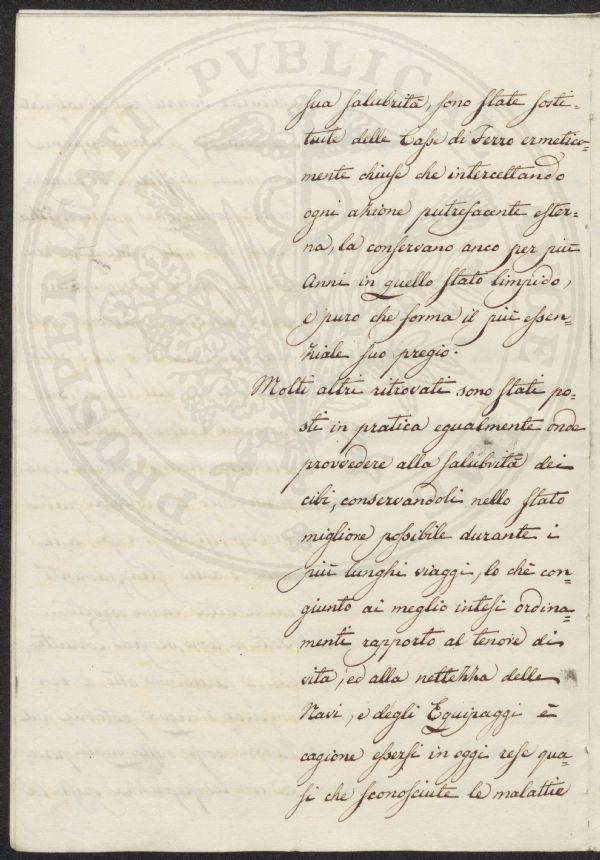 PROSPERITATI PVBLICAE
sua salubrità, sono state sosti-
tuite delle Casse di Ferro ermetica-
mente chiuse che intercettando
ogni azione putrefacente ester-
na, la conservano anco per più
Anni in quello stato limpido,
e puro che forma il più essen-
ziale suo pregio.
Molti altri ritrovati sono stati po-
sti in pratica egualmente onde
provvedere alla salubrità dei
cibi, conservandoli nello stato
migliore possibile durante i
più lunghi viaggi, lo chè con-
giunto ai meglio intesi ordina-
menti rapporto al tenore di
vita, ed alla nettezza delle
Navi, e degli Equipaggi è
cagione essersi in oggi rese qua-
si che sconosciute le malattie